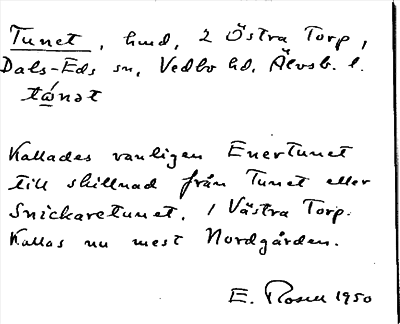 Tunet, hmd, 2 Östra Torp,
Dals-Eds sn, Vedbo hd, Älvsb. l.
Kallades vanligen Enertunet
till skillnad från Tunet eller
Snickaretunet, 1 Västra Torp.
Kallas nu mest Nordgården.
E. Rosell 1950